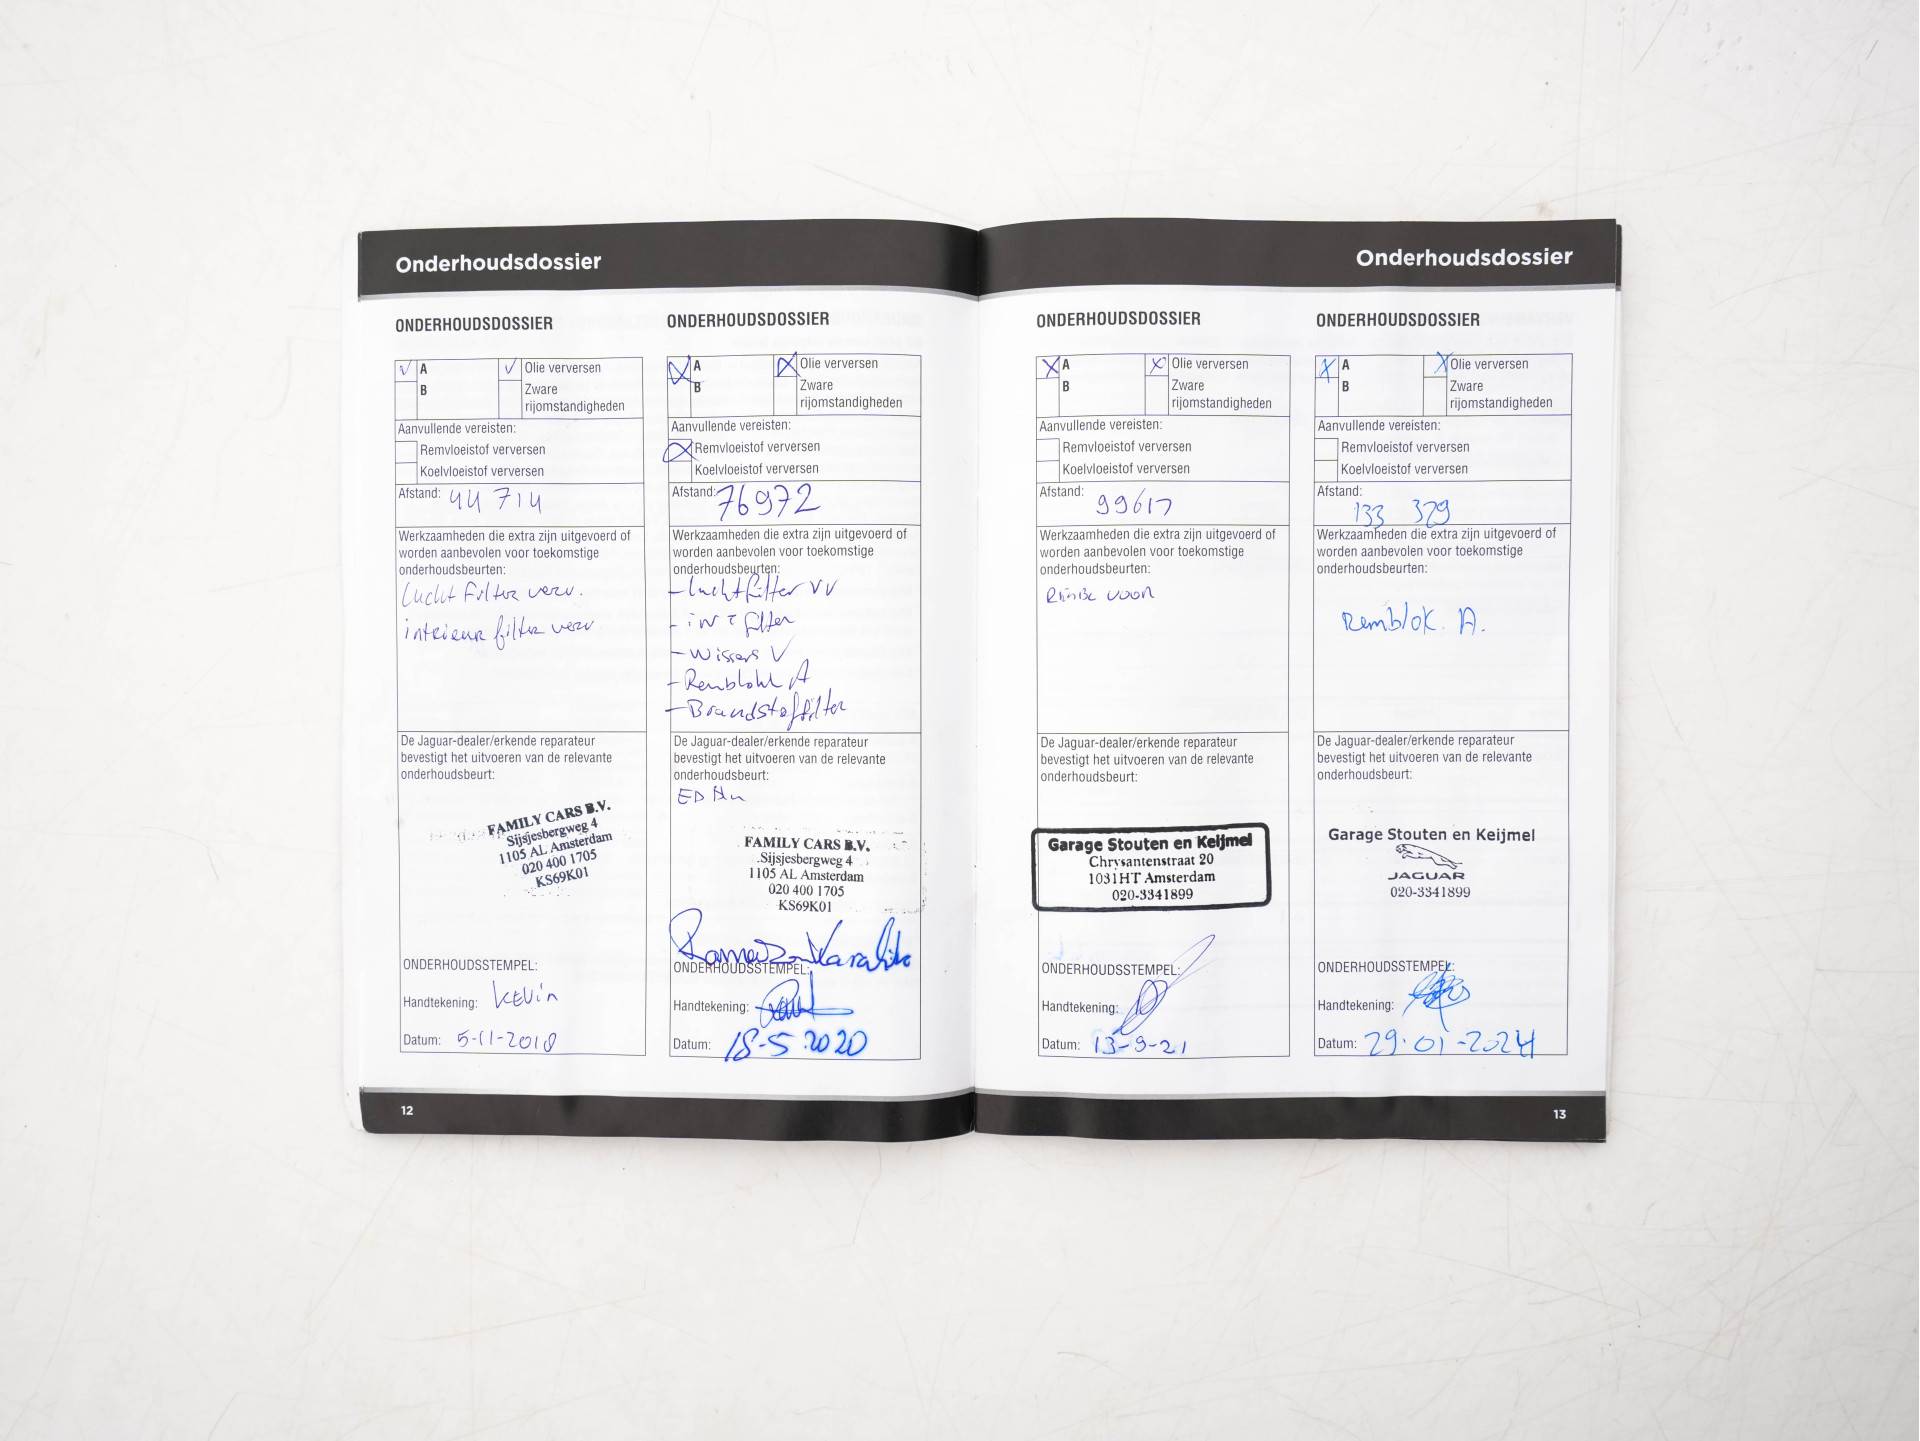 Onderhoudsdossier
ONDERHOUDSDOSSIER
A
Olie verversen
B
Zware
rijomstandigheden
Aanvullende vereisten:
Remvloeistof verversen
Koelvloeistof verversen
Afstand: 44 714
Werkzaamheden die extra zijn uitgevoerd of
worden aanbevolen voor toekomstige
onderhoudsbeurten:
Lucht filter verv.
intrieur filter verv
De Jaguar-dealer/erkende reparateur
bevestigt het uitvoeren van de relevante
onderhoudsbeurt:
FAMILY CARS B.V.
Sijsjesbergweg 4
1105 AL Amsterdam
020 400 1705
KS69K01
ONDERHOUDSSTEMPEL:
Handtekening: Kevin
Datum: 5-11-2018
12
ONDERHOUDSDOSSIER
A
Olie verversen
B
Zware
rijomstandigheden
Aanvullende vereisten:
Remvloeistof verversen
Koelvloeistof verversen
Afstand: 76972
Werkzaamheden die extra zijn uitgevoerd of
worden aanbevolen voor toekomstige
onderhoudsbeurten:
- luchtfilter VV
- int filter
- Wissers V
- Remblokk A
- Brandstoffilter
De Jaguar-dealer/erkende reparateur
bevestigt het uitvoeren van de relevante
onderhoudsbeurt:
FAMILY CARS B.V.
Sijsjesbergweg 4
1105 AL Amsterdam
020 400 1705
KS69K01
ONDERHOUDSSTEMPEL:
Handtekening:
Datum: 18-5-2020
Onderhoudsdossier
ONDERHOUDSDOSSIER
A
Olie verversen
B
Zware
rijomstandigheden
Aanvullende vereisten:
Remvloeistof verversen
Koelvloeistof verversen
Afstand: 99617
Werkzaamheden die extra zijn uitgevoerd of
worden aanbevolen voor toekomstige
onderhoudsbeurten:
voor
De Jaguar-dealer/erkende reparateur
bevestigt het uitvoeren van de relevante
onderhoudsbeurt:
Garage Stouten en Keijmel
Chrysantenstraat 20
1031HT Amsterdam
020-3341899
ONDERHOUDSSTEMPEL:
Handtekening:
Datum: 13-9-21
ONDERHOUDSDOSSIER
A
Olie verversen
B
Zware
rijomstandigheden
Aanvullende vereisten:
Remvloeistof verversen
Koelvloeistof verversen
Afstand:
133 329
Werkzaamheden die extra zijn uitgevoerd of
worden aanbevolen voor toekomstige
onderhoudsbeurten:
Remblok. A.
De Jaguar-dealer/erkende reparateur
bevestigt het uitvoeren van de relevante
onderhoudsbeurt:
Garage Stouten en Keijmel
JAGUAR
020-3341899
ONDERHOUDSSTEMPEL:
Handtekening:
Datum: 29-01-2024
13